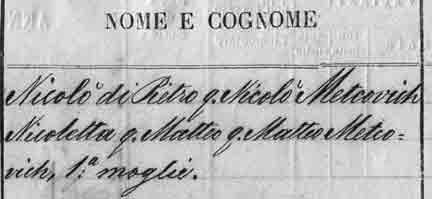 NOME E COGNOME
Nicolò di Pietro q. Nicolò Metcovich
Nicoletta q. Matteo q. Matteo Metco=
vich, 1.ª moglie.